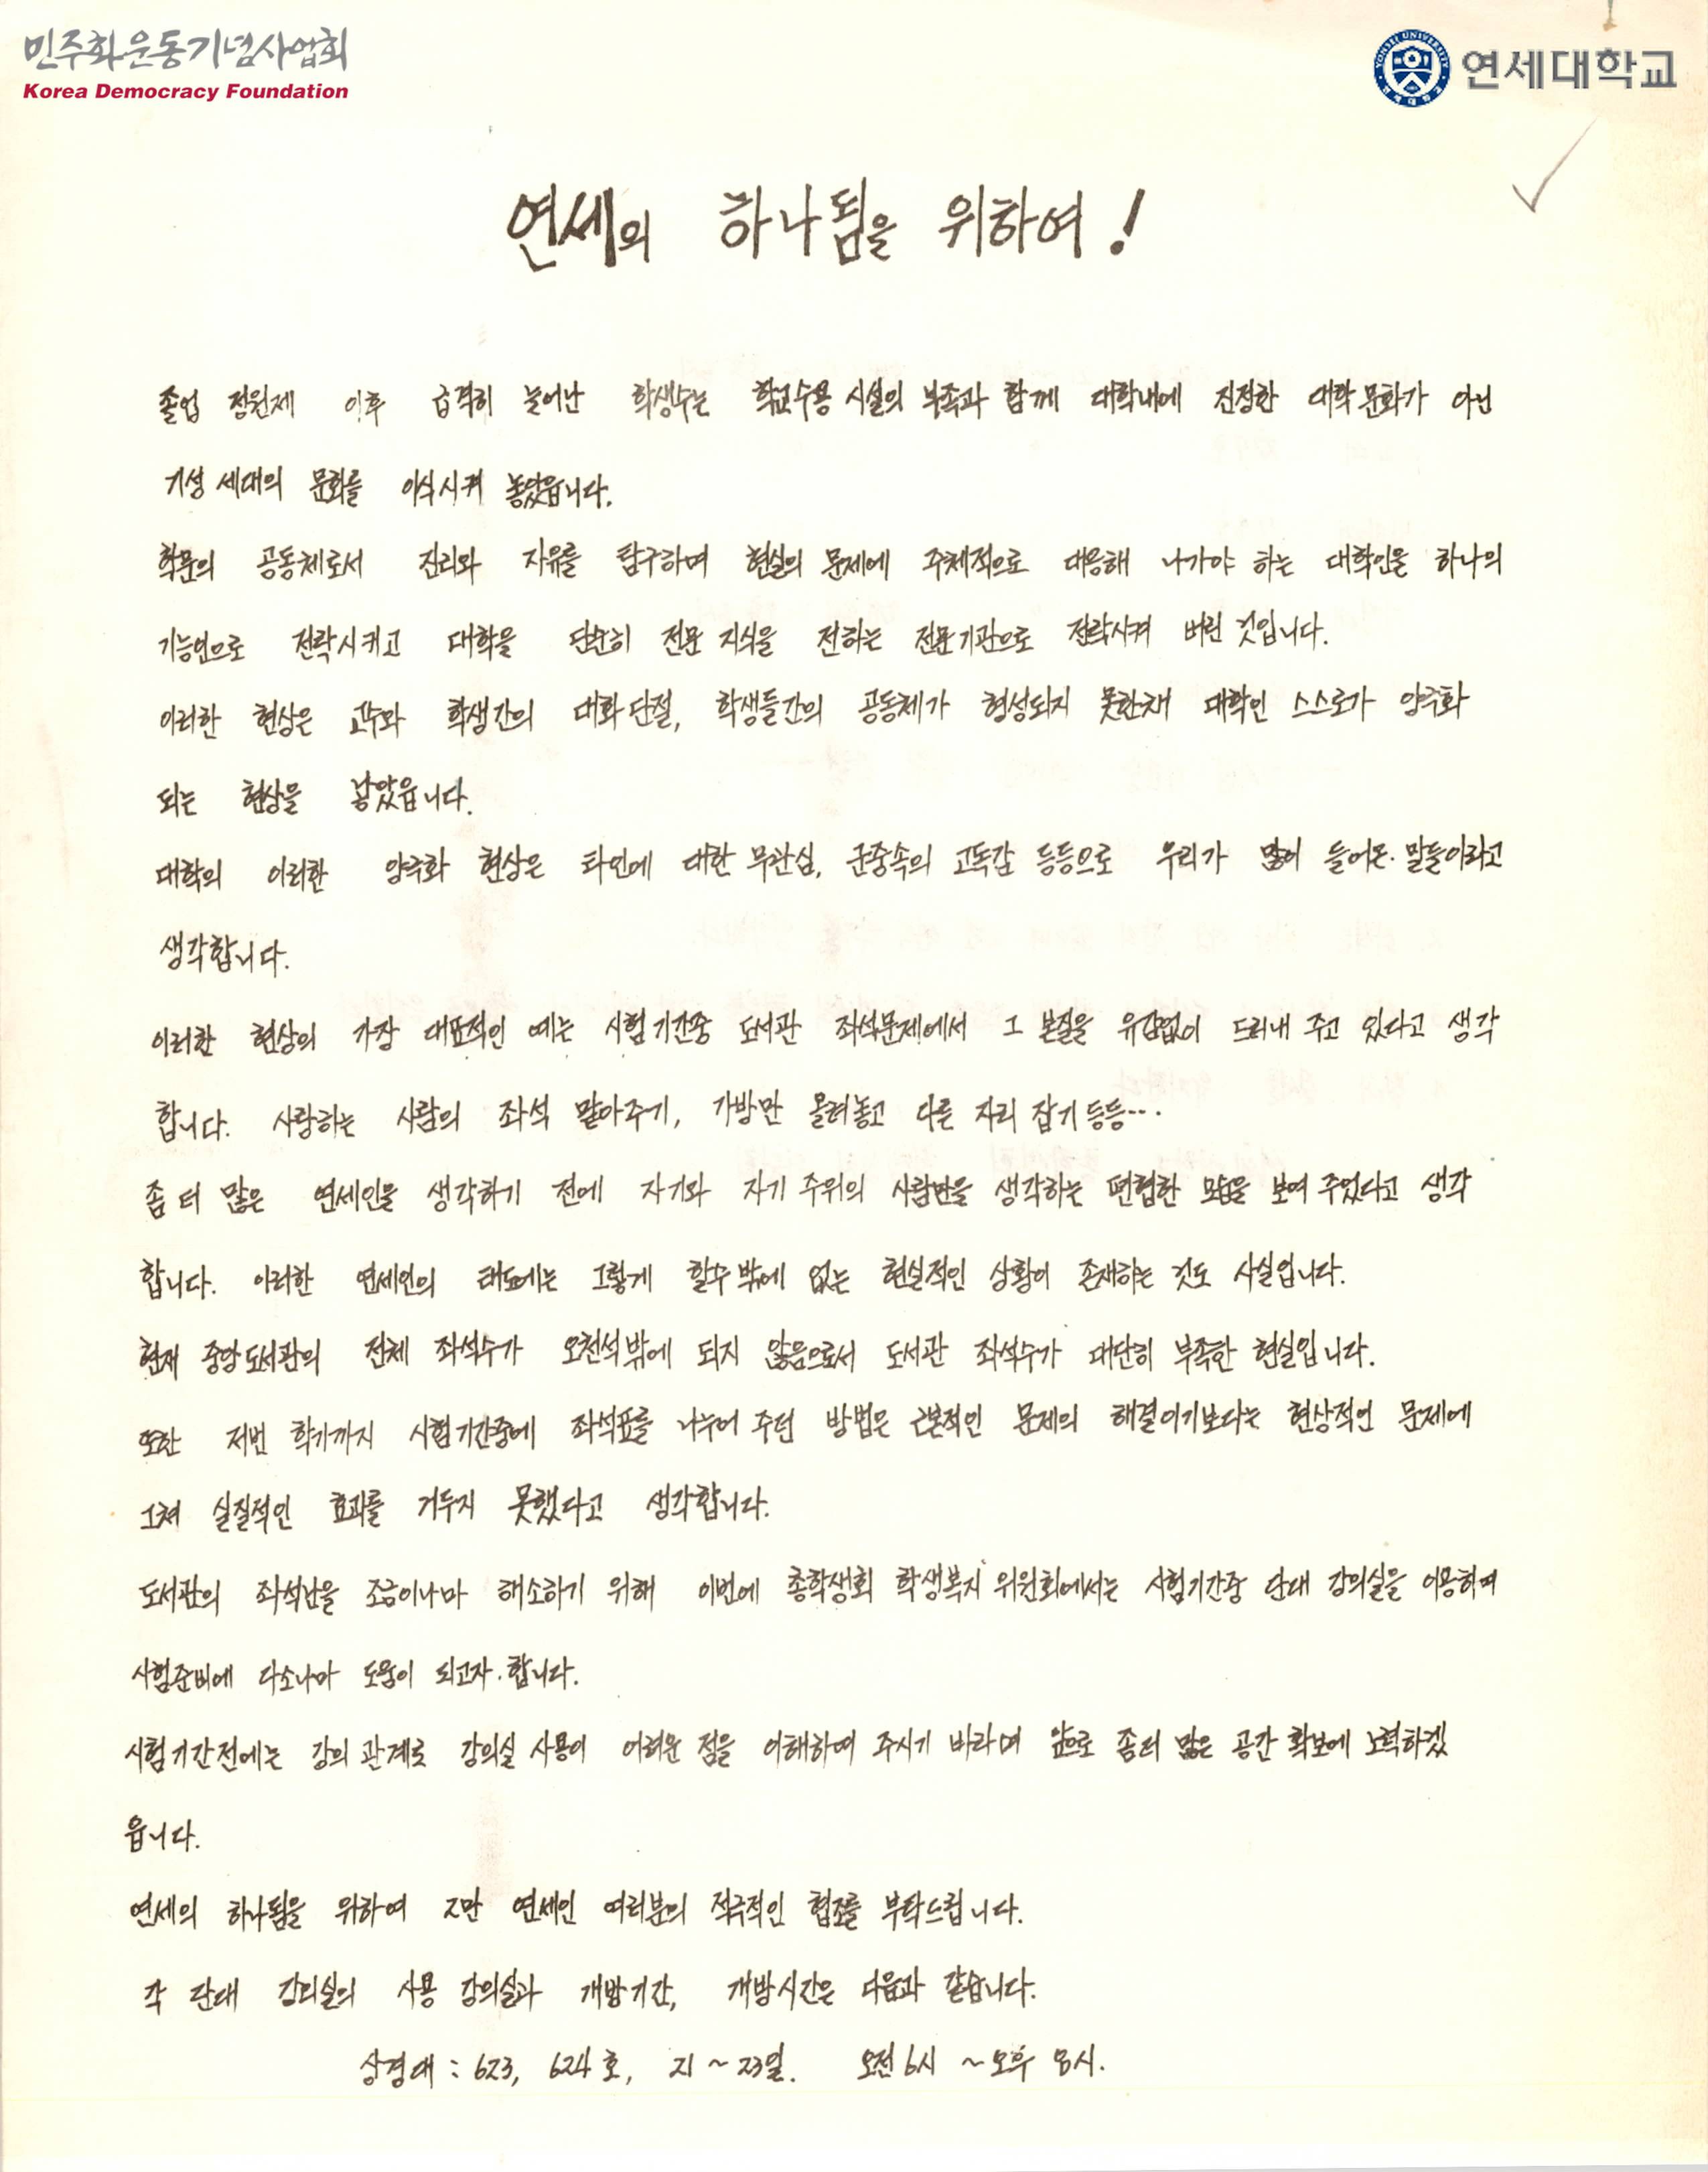 민주화운동기념사업회
Korea Democracy Foundation
YONSEI UNIVERSITY
연세대학교
연세대학교
연세의 하나됨을 위하여!
졸업 정원제 이후 급격히 늘어난 학생수는 학교수용 시설의 부족과 함께 대학내에 진정한 대학문화가 아닌
기성 세대의 문화를 이식시켜 놓았읍니다.
학문의 공동체로서 진리와 자유를 탐구하며 현실의 문제에 주체적으로 대응해 나가야 하는 대학인을 하나의
기능인으로 전락시키고 대학을 단순히 전문 지식을 전하는 전문기관으로 전락시켜 버린 것입니다.
이러한 현상은 교수와 학생간의 대화단절, 학생들간의 공동체가 형성되지 못한채 대학인 스스로가 양극화
되는 현상을 낳았읍니다.
대학의 이러한 양극화 현상은 타인에 대한 무관심, 군중속의 고독감 등등으로 우리가 많이 들어온 말들이라고
생각합니다.
이러한 현상의 가장 대표적인 예는 시험기간중 도서관 좌석문제에서 그 본질을 유감없이 드러내 주고 있다고 생각
합니다. 사랑하는 사람의 좌석 맡아주기, 가방만 올려놓고 다른 자리 잡기 등등…
좀 더 많은 연세인을 생각하기 전에 자기와 자기 주위의 사람만을 생각하는 편협한 모습을 보여 주었다고 생각
합니다. 이러한 연세인의 태도에는 그렇게 할수 밖에 없는 현실적인 상황이 존재하는 것도 사실입니다.
현재 중앙도서관의 전체 좌석수가 오천석밖에 되지 않음으로서 도서관 좌석수가 대단히 부족한 현실입니다.
또한 저번 학기까지 시험기간중에 좌석표를 나누어 주던 방법은 근본적인 문제의 해결이기보다는 현상적인 문제에
그쳐 실질적인 효과를 거두지 못했다고 생각합니다.
도서관의 좌석난을 조금이나마 해소하기 위해 이번에 총학생회 학생복지 위원회에서는 시험기간중 단대 강의실을 이용하여
시험준비에 다소나마 도움이 되고자 합니다.
시험기간전에는 강의 관계로 강의실 사용이 어려운 점을 이해하여 주시기 바라며 앞으로 좀더 많은 공간 확보에 노력하겠
읍니다.
연세의 하나됨을 위하여 2만 연세인 여러분의 적극적인 협조를 부탁드립니다.
각 단대 강의실의 사용 강의실과 개방기간, 개방시간은 다음과 같습니다.
상경대 : 623, 624호, 21 ~ 23일. 오전 6시 ~ 오후 8시.